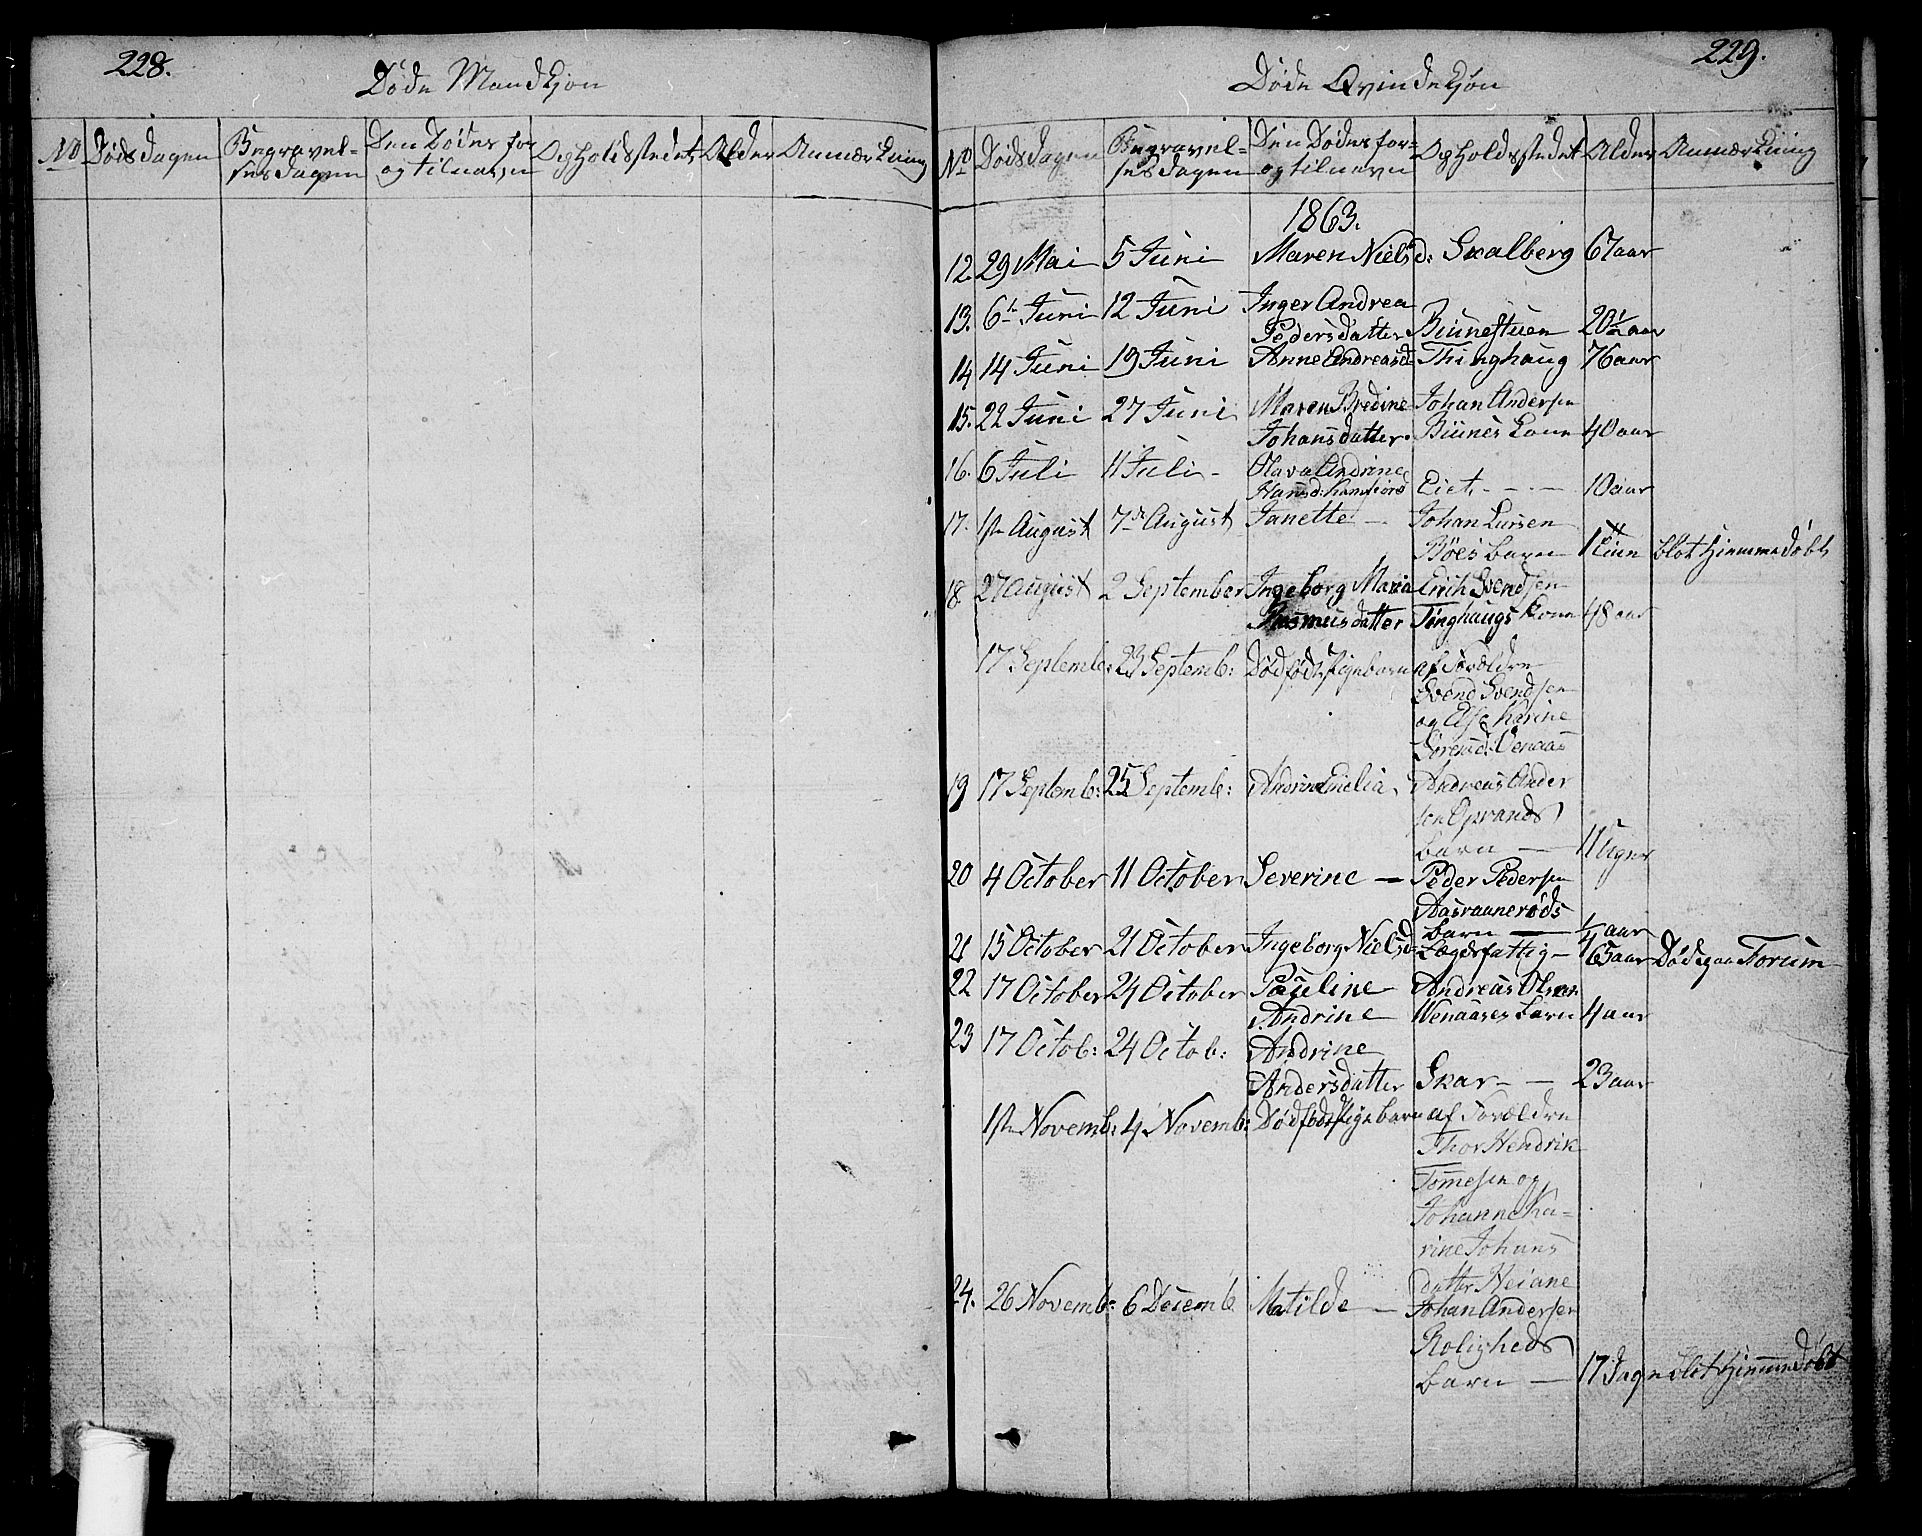 228.
Døde Mandkjøn
No Dødsdagen Begravel- Den Dødes for Opholdsstedet Alder Anmærkning
sesdagen og tilnavn
229.
Døde Qvindekjøn
No Dødsdagen Begravel= Den Dødes for= Opholdsstedet Alder Anmærkning
sesdagen og tilnavn
1863.
12. 29 Mai 5 Juni Maren Nielsd: Skalberg 67 aar
13. 6te Juni 12 Juni Inger Andrea
Pedersdatter Biinestuen 20½ aar
14 14 Juni 19 Juni Anne Andreasd Thinghaug 76 aar
15. 22 Juni 27 Juni Maren Bredine Johan Andersen
Johansdatter. Biines kone 40 aar
16. 6 Juli 11 Juli - Olava Andrine
Hansd: Eiet - - - 10 aar
17. 1ste August 7de August Janette - Johan Larsen
Bøes barn 1 blot hjemmedøbt
18 27 August 2 September Ingeborg Maria Erich Svendsen
Rasmusdatter Tinghaugs kone 48 aar
17 Septemb: 23 Septemb: Dødfødt Pigebarn af Forældre
Svend Svendsen
og Else Karine
Sørensd: Venaas
19 17 Septemb: 25 Septemb: Andrine Emelia, Andreas Ander
sen Oprands
barn - 11 Uger
20 4 October 11 October Severine - Peder Pedersen
Aasraanerøds
barn - ¼ aar
21 15 October 21 October Ingeborg Nielsd= Lægdsfattig - 65 aar Død paa Forum
22 17 October 24 October Pauline - Andreas Olsen
Andrine Wenaases barn 4 aar
23 17 Octob: 24 Octob: Andrine
Andersdatter Skar - - 23 aar
1ste Novemb: 4 Novemb: Dødfødt Pigebarn af Forældre
Thor Hendrik
Tomesen og
Johanne Ka-
rine Johans
datter Heiane
24. 26 Novemb: 6 Decemb Matilde - Johan Andersen
Roligheds
barn - 17 Dage blot hjemmedøbt